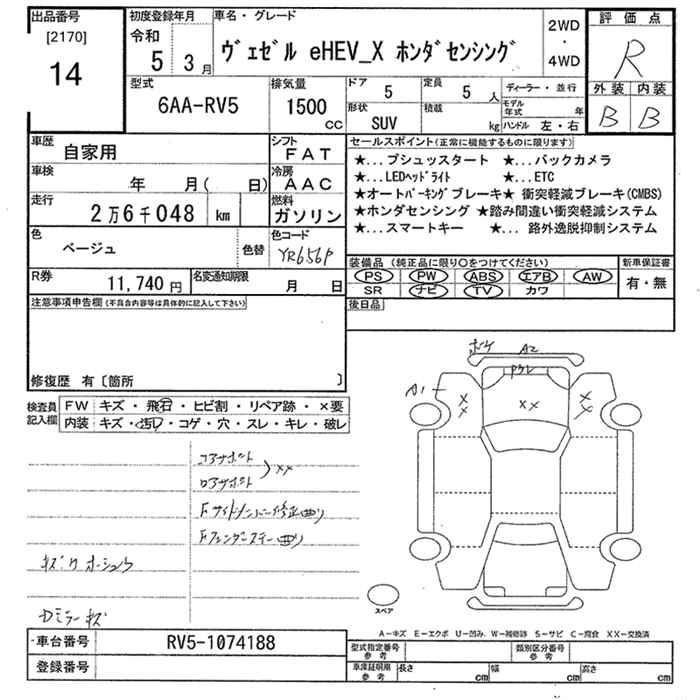 出品番号 初度登録年月 車名・グレード 評価点
[2170] 令和 2WD
14 5 3月 ヴェゼル eHEV_X ホンダセンシング ・ R
4WD
型式 排気量 ドア 5 定員 5 人 ディーラー・並行 外装 内装
6AA-RV5 1500 CC 形状 SUV 積載 kg モデル年式 年 B B
ハンドル 左・右
車歴 自家用 シフト FAT セールスポイント(正常に機能するものに限ります)
車検 年 月( 日) 冷房 AAC ★... プシュッスタート ★... バックカメラ
★...LEDヘッドライト ★... ETC
走行 2万6千048 km 燃料 ガソリン ★オートパーキングブレーキ★ 衝突軽減ブレーキ(CMBS)
★ホンダセンシング ★踏み間違い衝突軽減システム
色 ベージュ 色替 色コード YR656P ★... スマートキー ★... 路外逸脱抑制システム
装備品 (純正品に限り○をつけてください) 新車保証書
R券 11,740円 名変通知期限 月 日 PS PW ABS エアB AW 有・無
SR ナビ TV カワ
注意事項申告欄(不具合内容等は具体的に記入して下さい) 後日品
修復歴 有〔箇所 〕
検査員記入欄 FW キズ・飛石・ヒビ割・リペア跡・×要
内装 キズ・汚れ・コゲ・穴・スレ・キレ・破レ
ボケ A2
A1
××
コアサポート
ロアサポート ××
Fサイドメンバー修正曲り
Fフェンダーステー曲り
Dミラーキズ
スペア
A-キズ E-エクボ U-凹み W-補修跡 S-サビ C-腐食 XX-交換済
車台番号 RV5-1074188 型式指定番号 参考 類別区分番号 参考
登録番号 車庫証明用 参考 長さ cm 幅 cm 高さ cm